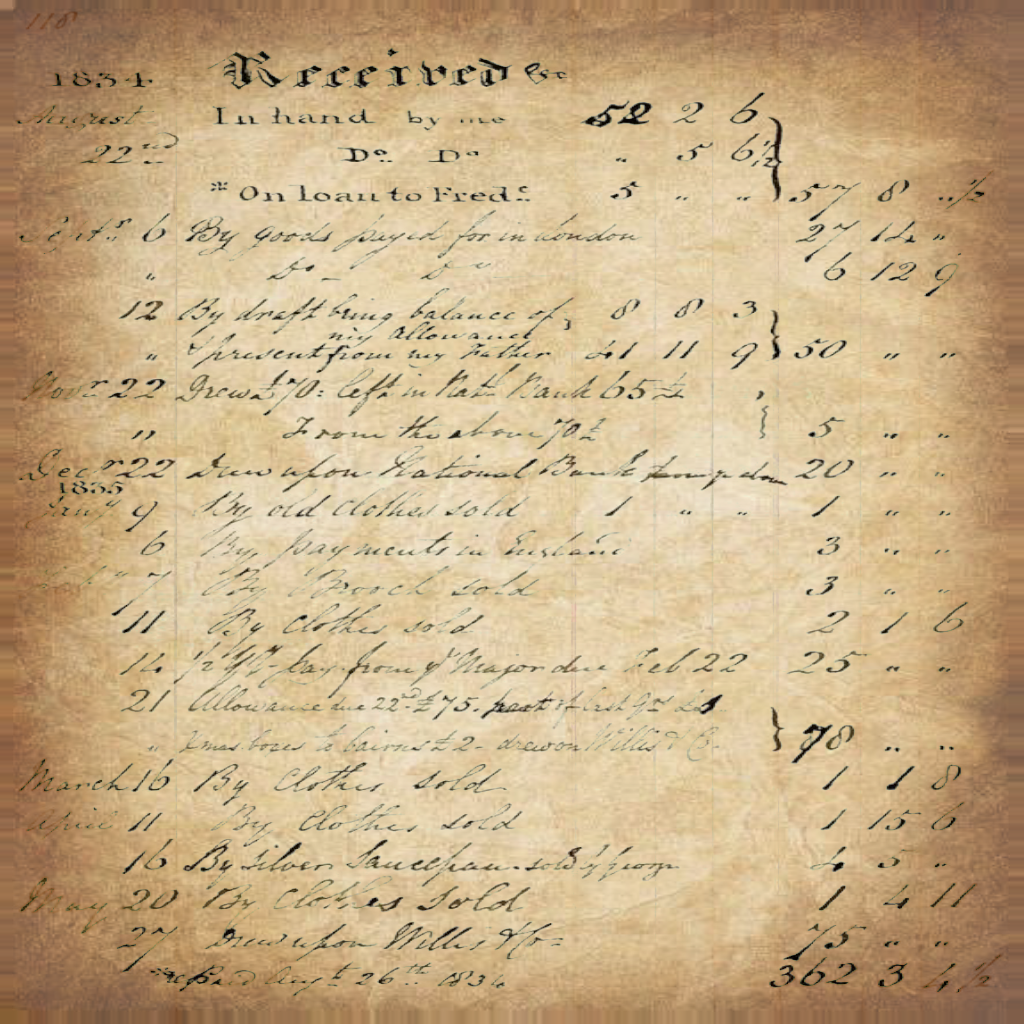 118
1834. Received &c
August In hand by me 52 2 6
22nd Do. Do „ 5 6½
* On loan to Fred.c 5 „ „ 57 8 „½
Septr 6 By goods payed for in London 27 14 „
„ Do - Do 6 12 9
12 By draft being balance of 8 8 3
my allowance
„ & present from my Father 41 11 9 50 „ „
Novr 22 Drew £70: left in Natl Bank 65£
„ From the above 70£ 5 „ „
Decr 22 Drew upon National Bank 20 „ „
1835
Jany 9 By old clothes sold 1 „ „ 1 „ „
6 By payments in England 3 „ „
7 By Brooch sold 3 „ „
11 By Clothes sold 2 1 6
14 from ye Major due Feb 22 25 „ „
21 Allowance due 22d £75. part of last qr £1
„ Xmas boxes to bairns £2 - drew on Willis & Co. 78 „ „
March 16 By Clothes sold 1 1 8
April 11 By Clothes sold 1 15 6
16 By Silver Saucepan - sold by George 4 5 „
May 20 By Clothes sold 1 4 11
27 Drew upon Willis & Co = 75 „ „
*repaid Augt 26th 1834 362 3 4½